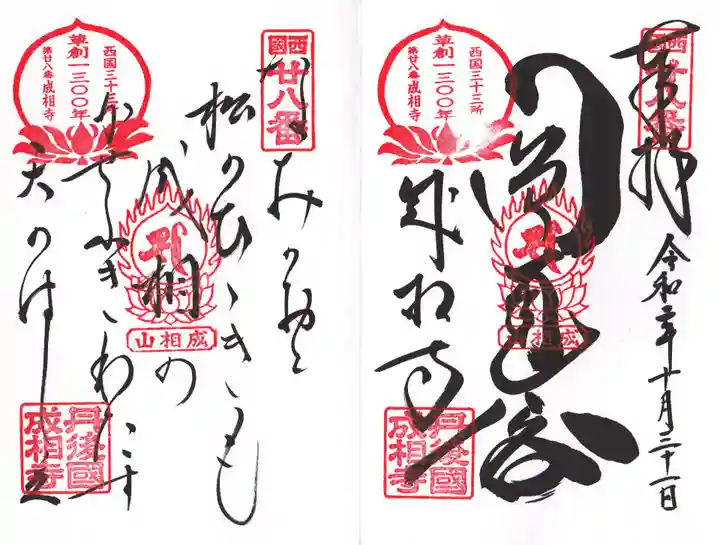 西國
廿八番
奉拝
令和二年十月二十一日
成相山
西国三十三所
草創一三〇〇年
第廿八番成相寺
成相寺
丹後國
成相寺
西國
廿八番
なみのおと
松のひゝきも
成相の
かせふきわたす
天のはし立
成相山
西国三十三所
草創一三〇〇年
第廿八番成相寺
丹後國
成相寺